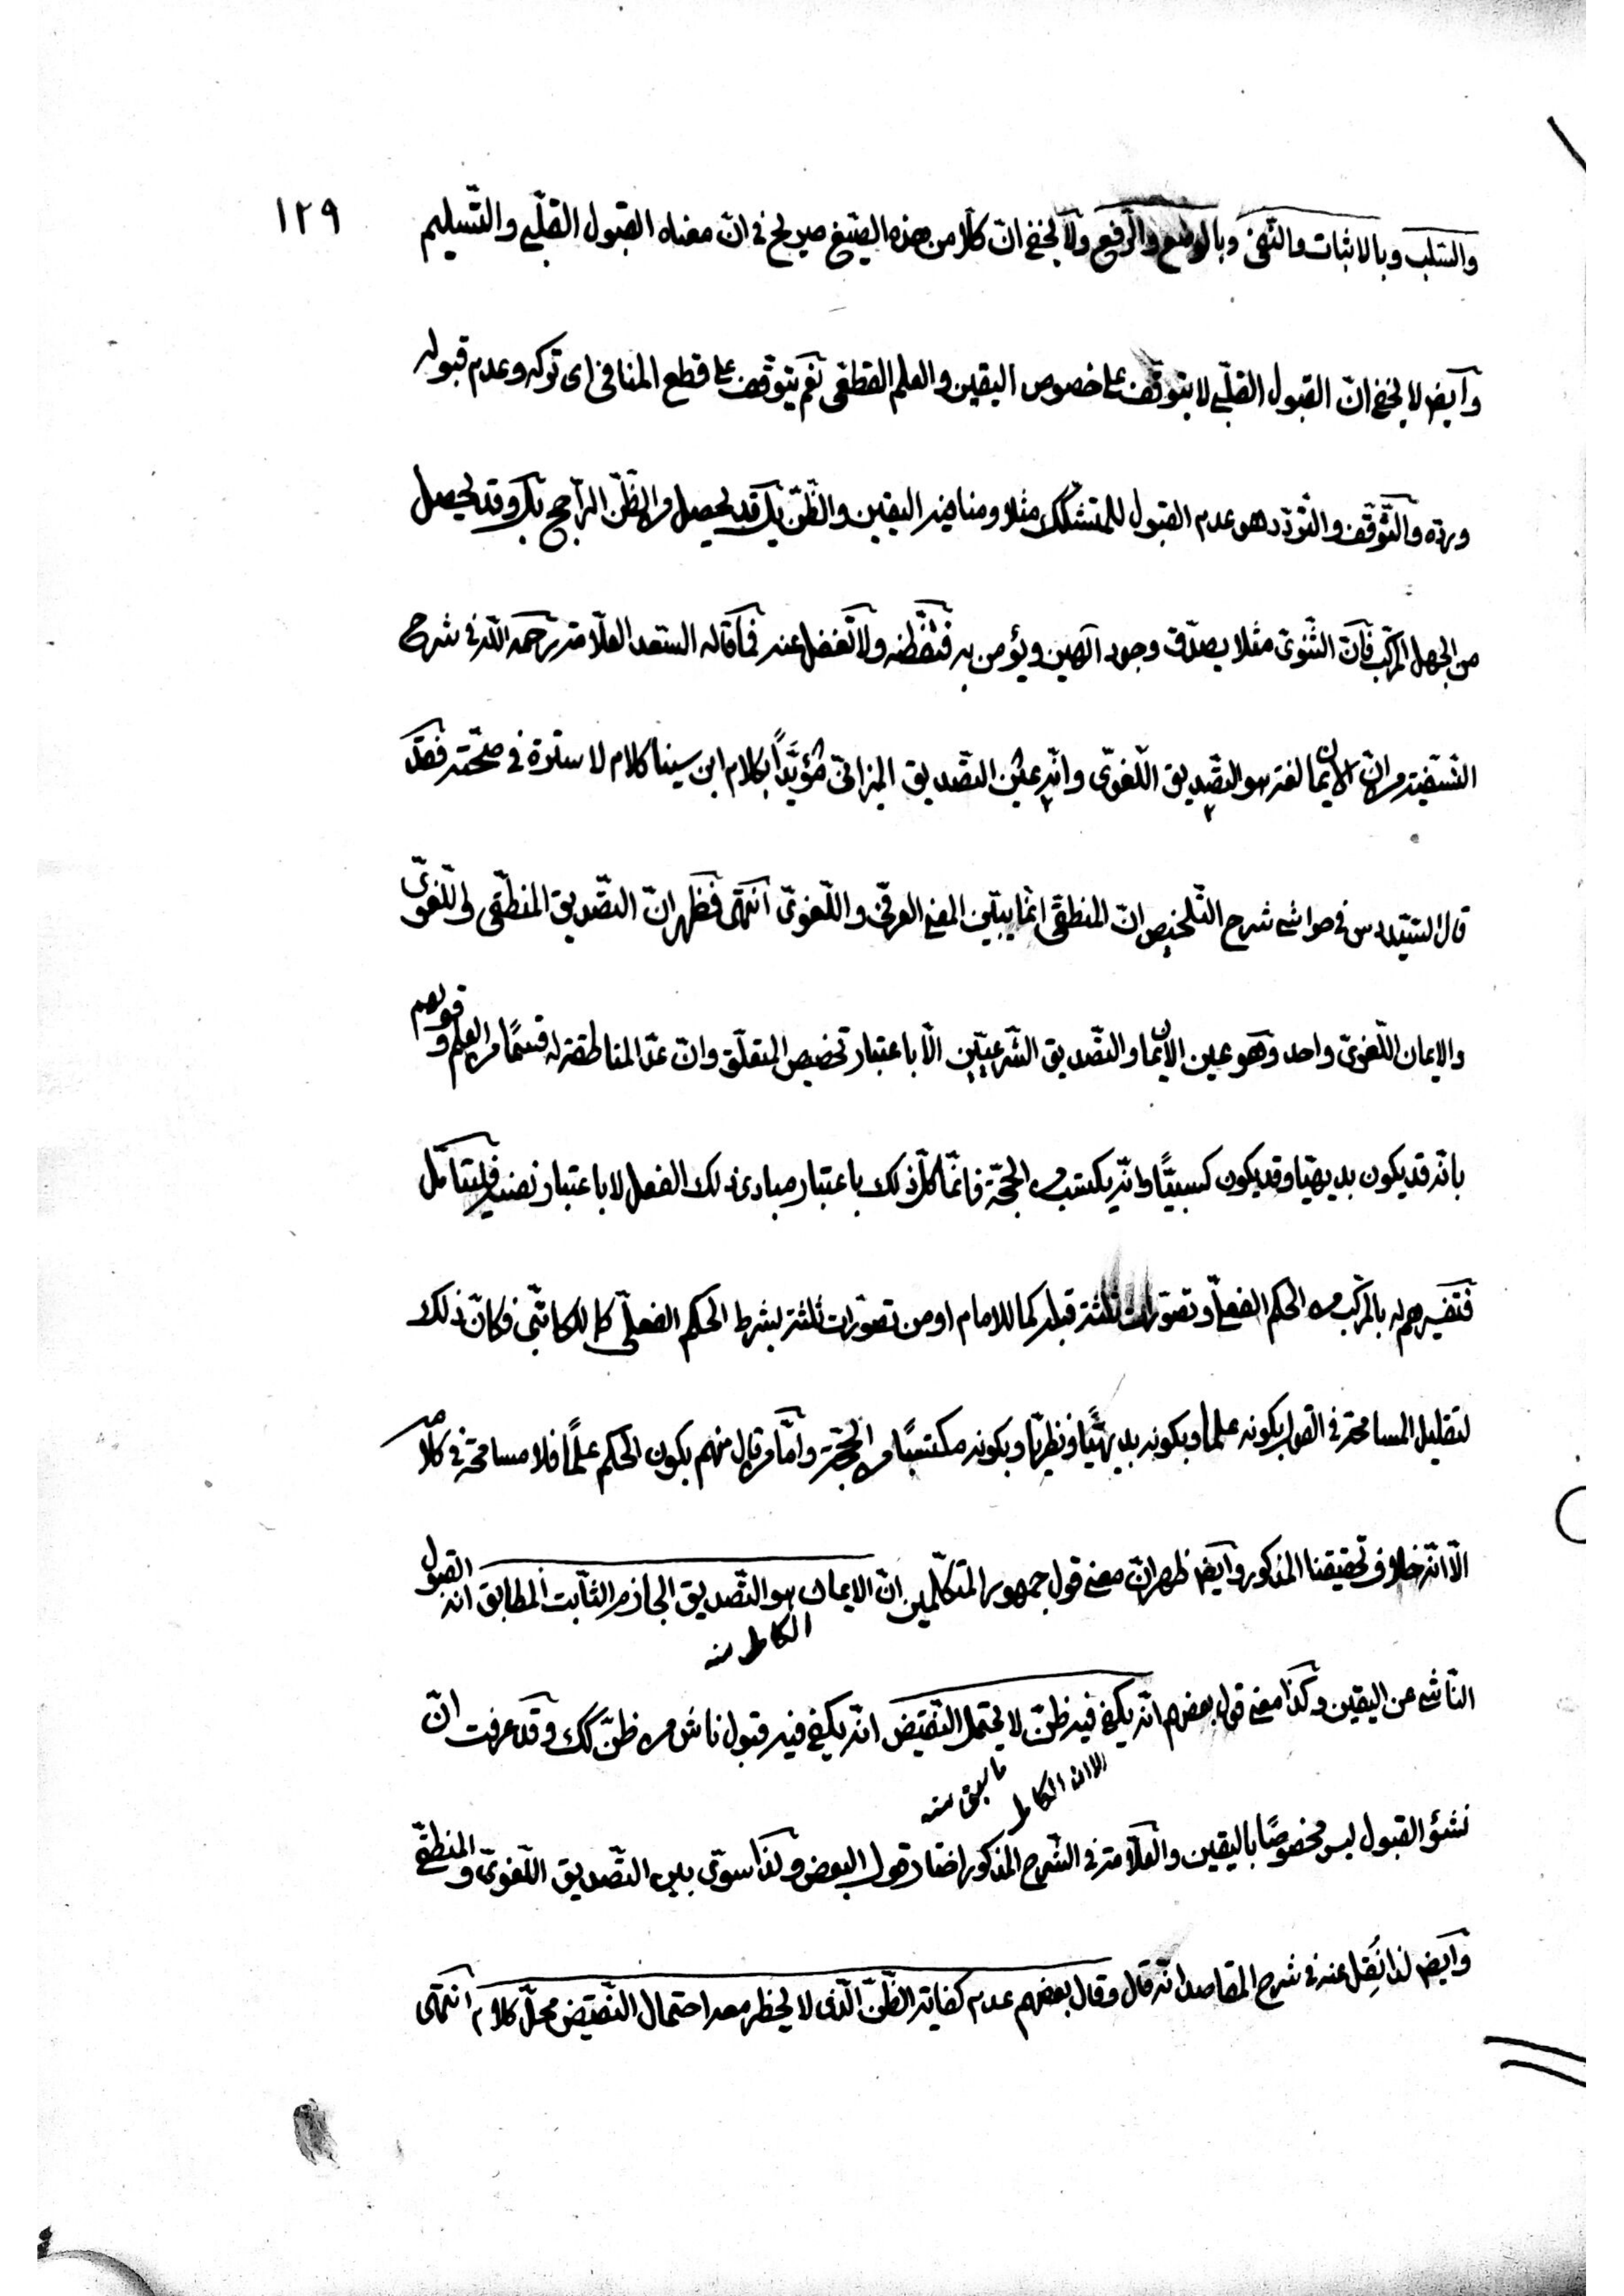 ١٢٩
والسّلب وبالاثبات والنّفى وبالوضع والرّفع ولا يخفى انّ كلّا من هذه الصّيغ صريح فى انّ معناه القبول القلبىّ والتّسليم
وايضا لا يخفى انّ القبول القلبىّ لا يتوقّف على خصوص اليقين والعلم القطعى نعم يتوقّف على قطع المنافى اى تركه وعدم قبوله
وردّه والتّوقّف والتّردّد هو عدم القبول للمتشكّك مثلا اليقين والظّنّ بل قد يحصل من الظّنّ الرّاجح بل وقد يحصل
من الجهل المركّب فانّ الثّنوىّ مثلا يصدّق وجود الهين ويؤمن به فتفطّنه ولا تغفل عنه فما قاله السّعد العلّامة رحمه اللّه فى شرح
من انّ الايمان لغة هو التّصديق اللّغوىّ وانّه عين التّصديق الميزانىّ مؤيّدًا بكلام ابن سينا كلام لا سترة فى صحّته فقد
قال السّيّد س فى حواشى شرح التّلخيص انّ المنطقى انّما يبيّن المعنى العرفىّ واللّغوىّ انتهى فظهر انّ التّصديق المنطقى واللّغوىّ
والايمان اللّغوىّ واحد وهو عين الايمان والتّصديق الشّرعيّين الّا باعتبار تخصيص المتعلّق وانّ عدّ المناطقة له قسمًا من العلم وقولهم
بانّه قد يكون بديهيّا وقد يكون كسبيّا وانّه يكتسب من الحجّة فانّما كلّ ذلك باعتبار مبادى ذلك الفعل لا باعتبار نفسه فليتامّل
فتفسيرهم له بالمركّب من الحكم الفعلىّ وتصوّرات ثلثة قبله كما للامام او من تصوّرات ثلثة بشرط الحكم الفعلىّ كما للكاتبىّ فكانّ ذلك
لتقليل المسامحة فى القول بكونه علما وبكونه بديهيّا ونظريّا وبكونه مكتسبًا من الحجّة وامّا من قال منهم بكون الحكم علمًا فلا مسامحة فى كلامه
الّا انّه خلاف تحقيقنا المذكور وايضا ظهر انّ معنى قول جمهور المتكلّمين انّ الايمان هو التّصديق الجازم الثّابت المطابق انه القبول
الكامل منه
النّاشى عن اليقين وكذا معنى قول بعضهم انّه يكفى فيه ظنّ لا يحتمل النّقيض انّه يكفى فيه قبول ناش من ظنّ كك وقد عرفت انّ
منه
نشؤ القبول ليس مخصوصًا باليقين والعلّامة فى الشّرح المذكور اختار قول البعض ولذا سوّى بين التّصديق اللّغوىّ والمنطقىّ
وايضا لذا نُقِل عنه فى شرح المقاصد انّه قال وقال بعضهم عدم كفاية الظّنّ الّذى لا يخطر معه احتمال النّقيض محلّ كلام انتهى